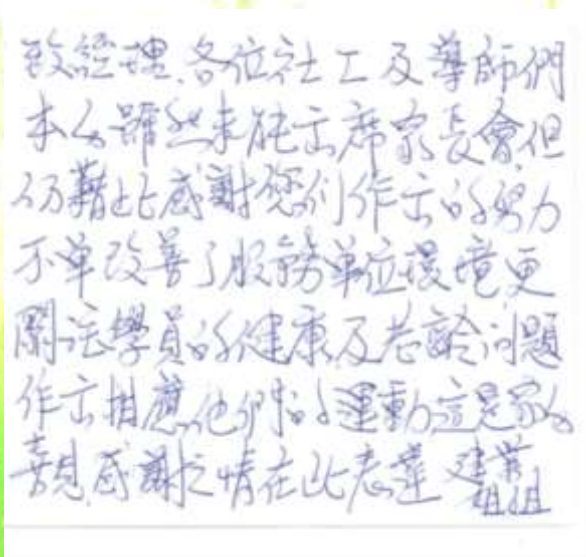 致經理.各位社工及導師們
本人雖然未能出席家長會,但
仍藉此感謝您们作出的努力
不单改善了服務单位環境更
關注學員的健康及老齡问題
作出相應他們的運動這是家人
喜見感謝之情在此表達 建業
姐姐